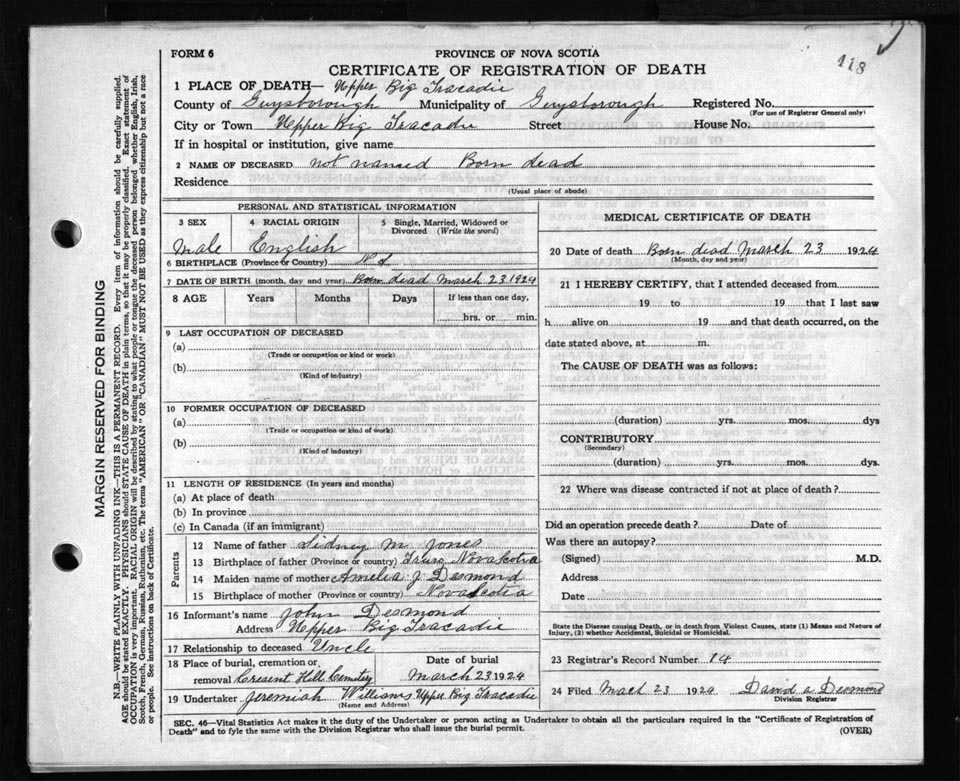 118
FORM 6
PROVINCE OF NOVA SCOTIA
CERTIFICATE OF REGISTRATION OF DEATH
1 PLACE OF DEATH— Upper Big Tracadie
County of Guysborough Municipality of Guysborough Registered No.
(For use of Registrar General only)
City or Town Upper Big Tracadie Street House No.
If in hospital or institution, give name
2 NAME OF DECEASED not named Born dead
Residence
(Usual place of abode)
PERSONAL AND STATISTICAL INFORMATION
3 SEX 4 RACIAL ORIGIN 5 Single, Married, Widowed or Divorced (Write the word)
Male English
6 BIRTHPLACE (Province or Country) N S
7 DATE OF BIRTH (month, day and year) Born dead March 23 1924
8 AGE Years Months Days If less than one day,
hrs. or min.
9 LAST OCCUPATION OF DECEASED
(a)
(Trade or occupation or kind or work)
(b)
(Kind of industry)
10 FORMER OCCUPATION OF DECEASED
(a)
(Trade or occupation or kind of work)
(b)
(Kind of industry)
11 LENGTH OF RESIDENCE (In years and months)
(a) At place of death
(b) In province
(c) In Canada (if an immigrant)
Parents
12 Name of father Sidney M Jones
13 Birthplace of father (Province or country) Truro Nova Scotia
14 Maiden name of mother Amelia J Desmond
15 Birthplace of mother (Province or country) Nova Scotia
16 Informant's name John Desmond
Address Upper Big Tracadie
17 Relationship to deceased Uncle
18 Place of burial, cremation or Date of burial
removal Cresant Hill Cemetery March 23 1924
19 Undertaker Jeremiah Williams Upper Big Tracadie
(Name and Address)
MEDICAL CERTIFICATE OF DEATH
20 Date of death Born dead March 23 1924
(Month, day and year)
21 I HEREBY CERTIFY, that I attended deceased from
19 to 19 that I last saw
h alive on 19 and that death occurred, on the
date stated above, at m.
The CAUSE OF DEATH was as follows:
(duration) yrs. mos. dys
CONTRIBUTORY
(Secondary)
(duration) yrs. mos. dys.
22 Where was disease contracted if not at place of death?
Did an operation precede death? Date of
Was there an autopsy?
(Signed) M.D.
Address
Date
State the Disease causing Death, or in death from Violent Causes, state (1) Means and Nature of
Injury, (2) whether Accidental, Suicidal or Homicidal.
23 Registrar's Record Number 14
24 Filed Mach 23 1924 David A Desmond
Division Registrar
SEC. 46—Vital Statistics Act makes it the duty of the Undertaker or person acting as Undertaker to obtain all the particulars required in the "Certificate of Registration of
Death" and to fyle the same with the Division Registrar who shall issue the burial permit.
(OVER)
MARGIN RESERVED FOR BINDING
N.B.—WRITE PLAINLY WITH UNFADING INK—THIS IS A PERMANENT RECORD. Every item of information should be carefully supplied.
AGE should be stated EXACTLY. PHYSICIANS should STATE CAUSE OF DEATH in plain terms, so that it may be properly classified. Exact statement of
OCCUPATION is very important. RACIAL ORIGIN will be described by stating to what people or tongue the deceased person belonged whether English, Irish,
Scotch, French, German, Russian, Ruthenian, etc. The terms "AMERICAN" OR "CANADIAN" MUST NOT BE USED as they express citizenship but not a race
or people. See instructions on back of Certificate.